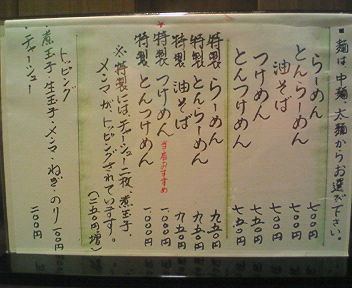 ■麺は、中麺、太麺からお選び下さい。
らーめん 七〇〇円
とんらーめん 七〇〇円
油そば 七〇〇円
つけめん 七五〇円
とんつけめん 七五〇円
特製 らーめん 九五〇円
特製 とんらーめん 九五〇円
特製 油そば 九五〇円
特製 つけめん 当店おすすめ 一〇〇〇円
特製 とんつけめん 一〇〇〇円
※特製には、チャーシュー二枚、煮玉子、
メンマがトッピングされています。
(二五〇円増)
トッピング
・煮玉子・生玉子・メンマ・ねぎ・のり 一〇〇円
・チャーシュー 二〇〇円